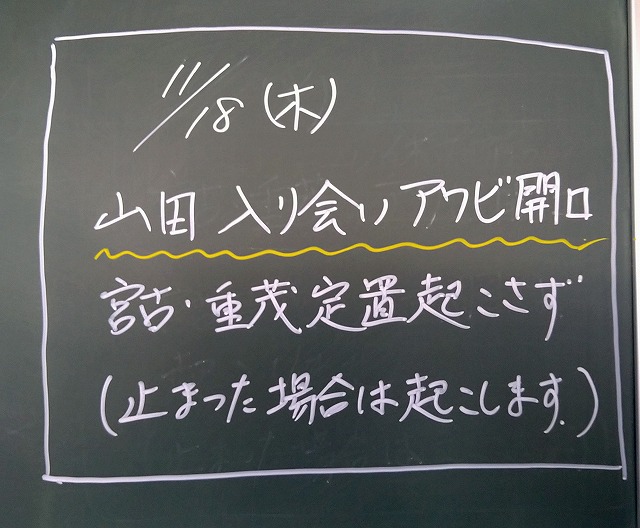 11/18(木)
山田入り会いアワビ開口
宮古・重茂定置起こさず
(止まった場合は起こします。)